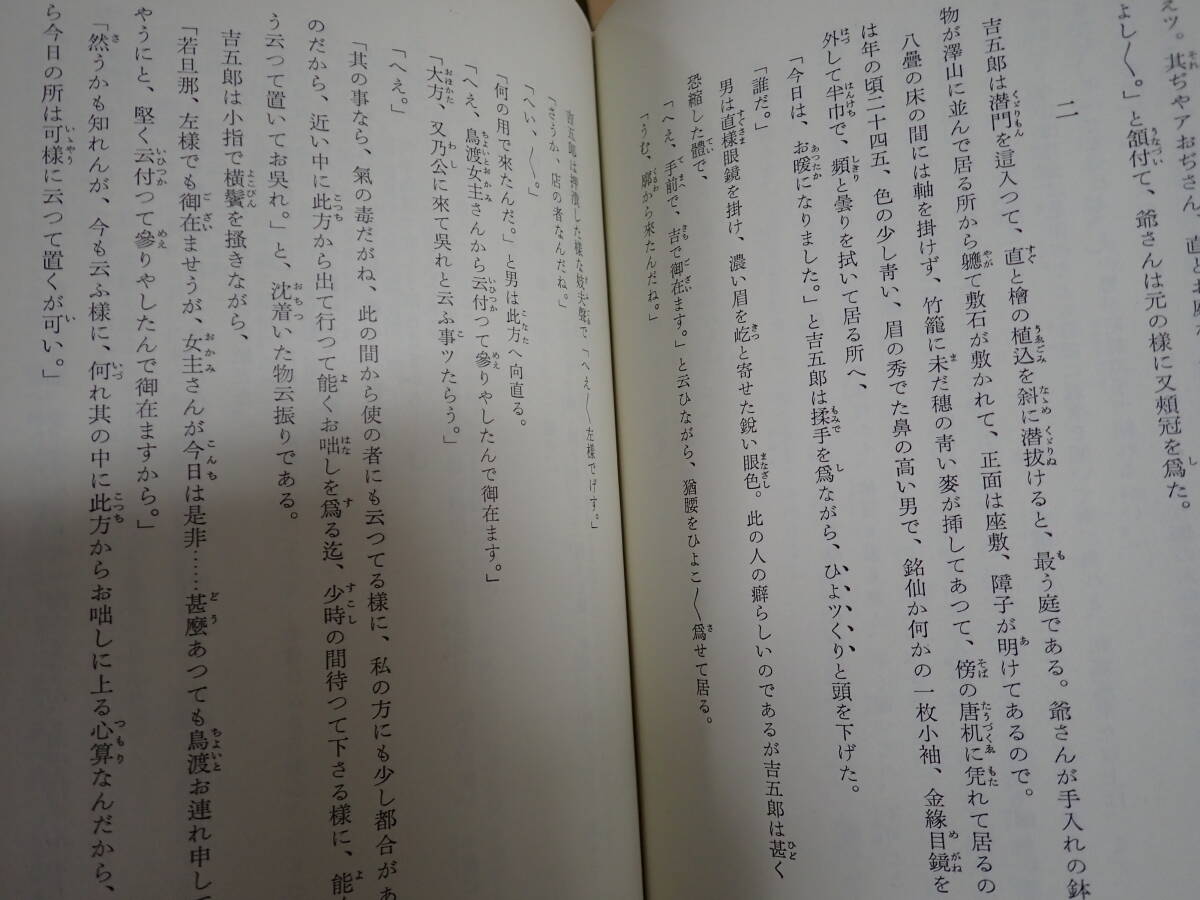 えッ。其ぢやアおぢさん、直と
よし〳〵。」と頷付て、爺さんは元の様に又頬冠を爲た。
二
吉五郎は潜門を這入つて、直と檜の植込を斜に潜拔けると、最う庭である。爺さんが手入れの鉢
物が澤山に並んで居る所から軈て敷石が敷かれて、正面は座敷、障子が明けてあるので。
八疊の床の間には軸を掛けず、竹籠に未だ穗の靑い麥が挿してあつて、傍の唐机に凭れて居るの
は年の頃二十四五、色の少し靑い、眉の秀でた鼻の高い男で、銘仙か何かの一枚小袖、金緣目鏡を
外して半巾で、頻と曇りを拭いて居る所へ、
「今日は、お暖になりました。」と吉五郎は揉手を爲ながら、ひよツくりと頭を下げた。
「誰だ。」
男は直樣眼鏡を掛け、濃い眉を屹と寄せた銳い眼色。此の人の癖らしいのであるが吉五郎は甚く
恐縮した體で、
「へえ、手前で、吉で御在ます。」と云ひながら、猶腰をひよこ〳〵爲せて居る。
「うむ、廓から來たんだね。」
吉五郎は押潰した樣な聲で「へえ〳〵左様でげす。」
「さうか、店の者なんだね。」
「へい、〳〵。」
「何の用で來たんだ。」と男は此方へ向直る。
「へえ、鳥渡女主さんから云付つて參りやしたんで御在ます。」
「大方、又乃公に來て吳れと云ふ事ツたらう。」
「へえ。」
「其の事なら、氣の毒だがね、此の間から使の者にも云つてる樣に、私の方にも少し都合があ
のだから、近い中に此方から出て行つて能くお咄しを爲る迄、少時の間待つて下さる様に、能
う云つて置いてお吳れ。」と、沈着いた物云振りである。
吉五郎は小指で橫鬢を搔きながら、
「若旦那、左樣でも御在ませうが、女主さんが今日は是非……甚麼あつても鳥渡お連れ申して
やうにと、堅く云付つて參りやしたんで御在ますから。」
「然うかも知れんが、今も云ふ樣に、何れ其の中に此方からお咄しに上る心算なんだから、
ら今日の所は可樣に云つて置くが可い。」